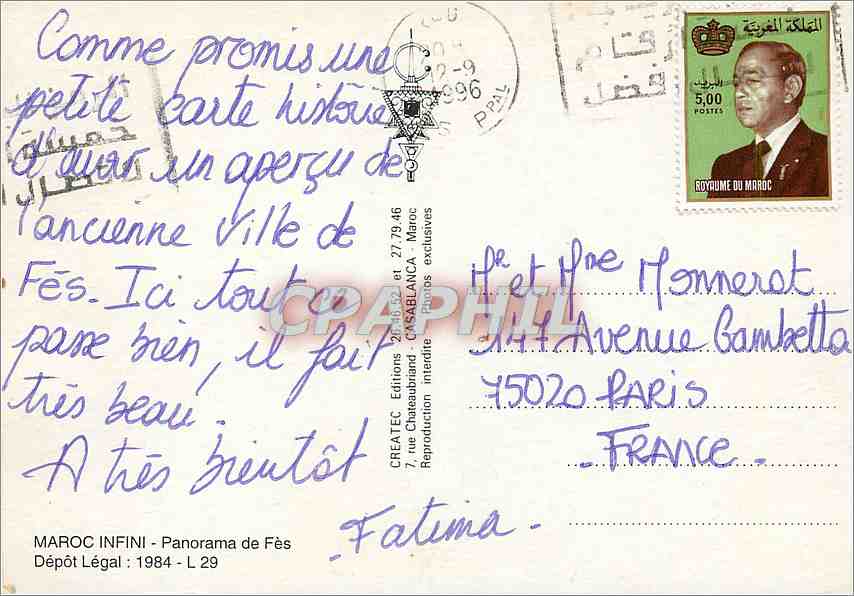 Comme promis une
petite carte histoire
d'avoir un aperçu de
l'ancienne ville de
Fés. Ici tout ce
passe bien, il fait
très beau.
A très bientôt
- Fatima -
MAROC INFINI - Panorama de Fès
Dépôt Légal : 1984 - L 29
CREATEC Editions 26.46.52 et 27.79.46
7, rue Chateaubriand - CASABLANCA - Maroc
Reproduction interdite - Photos exclusives
12-9
1996
PPAL
المملكة المغربية
البريد
5,00
POSTES
ROYAUME DU MAROC
Mr et Mme Monnerat
147 Avenue Gambetta
75020 PARIS
- FRANCE -
CPAPHIL